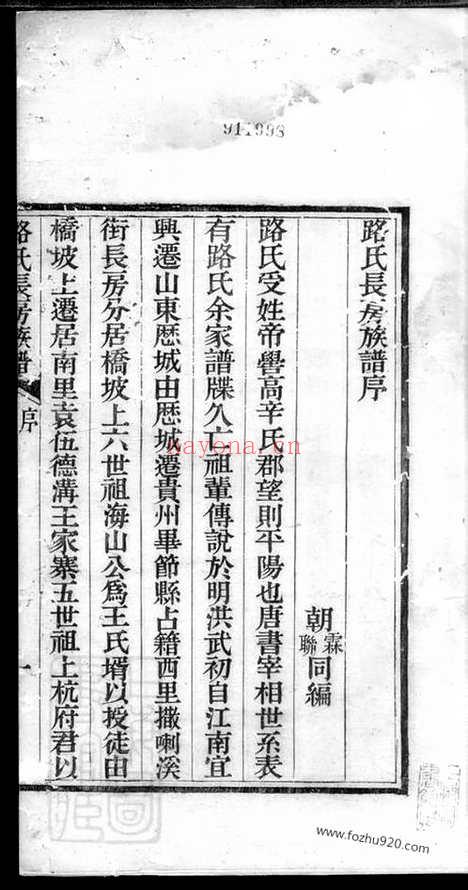 911998
路氏長房族譜序
朝霖聯同編
路氏受姓帝嚳高辛氏郡望則平陽也唐書宰相世系表
有路氏余家譜牒久亡祖輩傳說於明洪武初自江南宜
興遷山東歷城由歷城遷貴州畢節縣占籍西里撒喇溪
街長房分居橋坡上六世祖海山公為王氏壻以授徒由
橋坡上遷居南里袁伍德溝王家寨五世祖上杭府君以
路氏長房族譜 序
nayona.cn
www.fozhu920.com